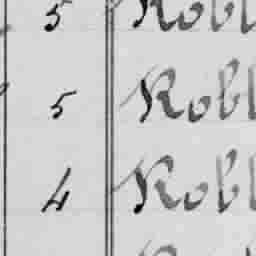 5 Robl
5 Robl
4 Robl